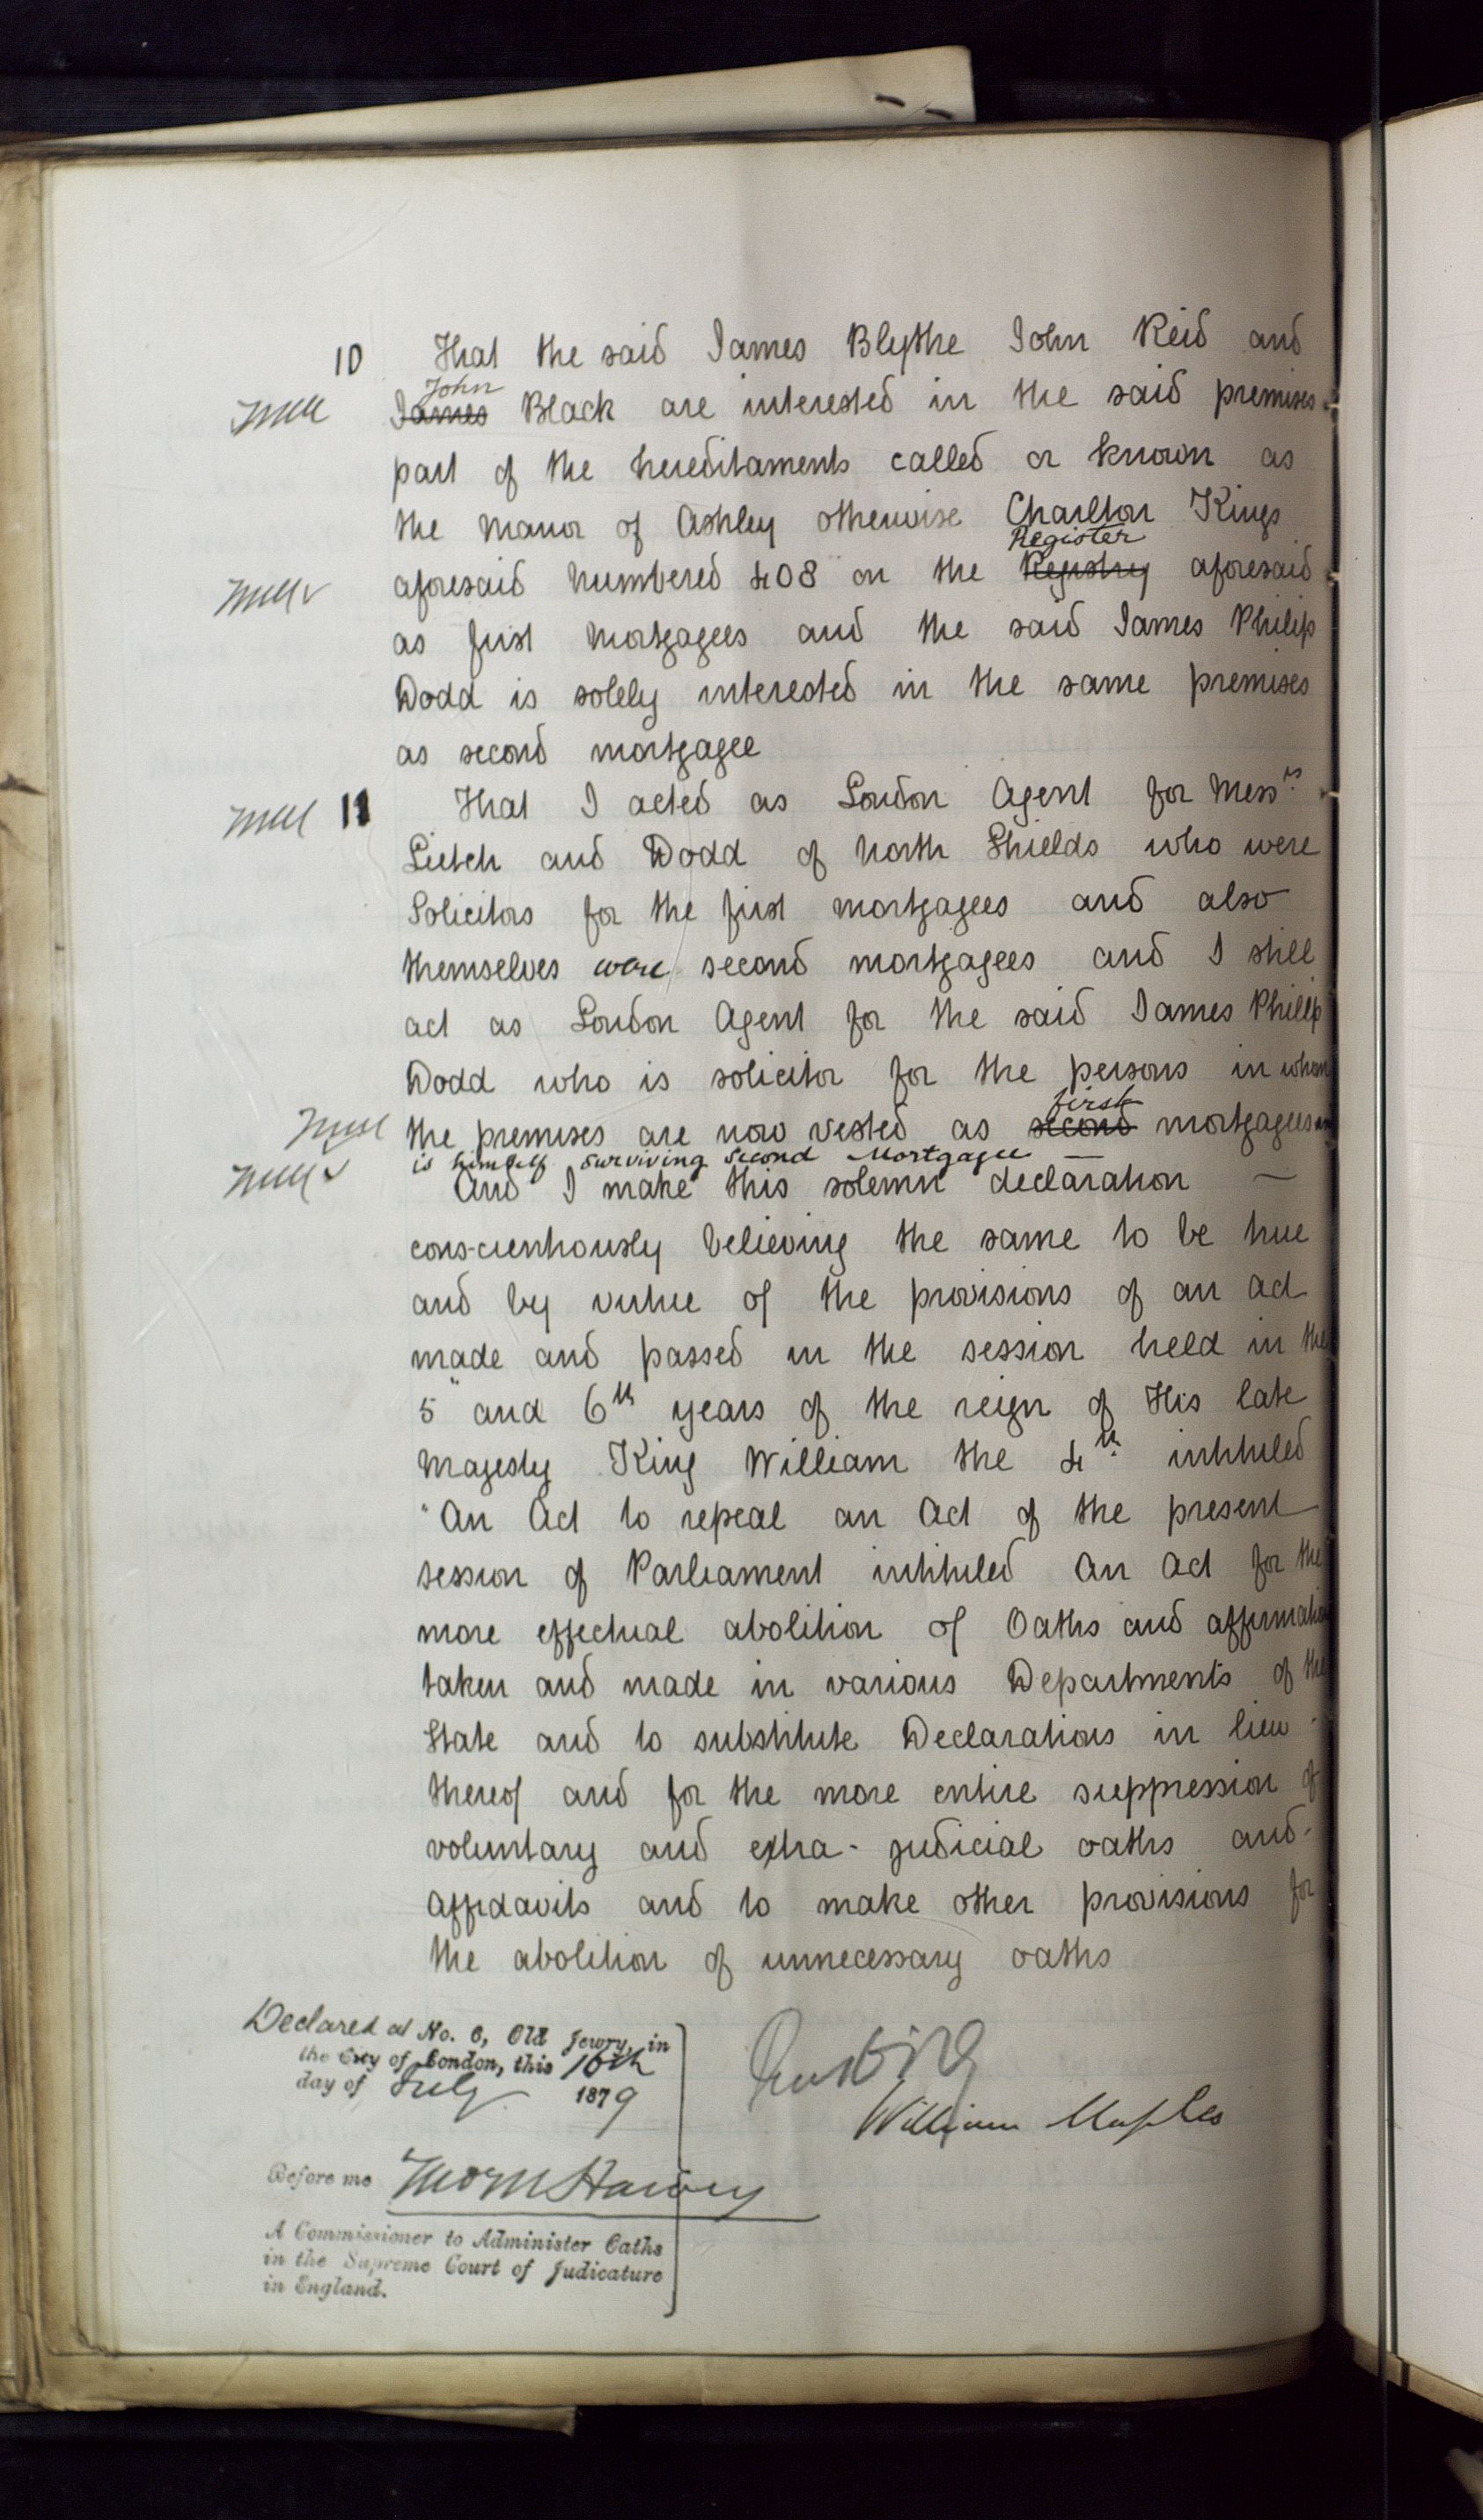 10 That the said James Blythe John Reid and
John
James Black are interested in the said premises
part of the hereditaments called or known as
the Manor of Ashley otherwise Charlton Kings
Register
aforesaid numbered 408 on the Registry aforesaid
as first Mortgagees and the said James Philip
Dodd is solely interested in the same premises
as second mortgagee
11 That I acted as London Agent for Messrs.
Lietch and Dodd of North Shields who were
Solicitors for the first mortgagees and also
themselves were second mortgagees and I still
act as London Agent for the said James Philip
Dodd who is solicitor for the persons in whom
first
the premises are now vested as second mortgagees
is himself surviving Second Mortgagee
And I make this solemn declaration
cons-cientiously believing the same to be true
and by virtue of the provisions of an Act
made and passed in the session held in the
5" and 6th years of the reign of His late
Majesty King William the 4th intituled
"An Act to repeal an Act of the present
session of Parliament intituled An Act for the
more effectual abolition of Oaths and affirmation
taken and made in various Departments of the
State and to substitute Declarations in lieu
thereof and for the more entire suppression of
voluntary and extra-judicial oaths and
Affidavits and to make other provisions for
the abolition of unnecessary oaths
Declared at No. 6, Old Jewry, in
the City of London, this 16th
day of July 1879
William Maples
Before me
A Commissioner to Administer Oaths
in the Supreme Court of Judicature
in England.